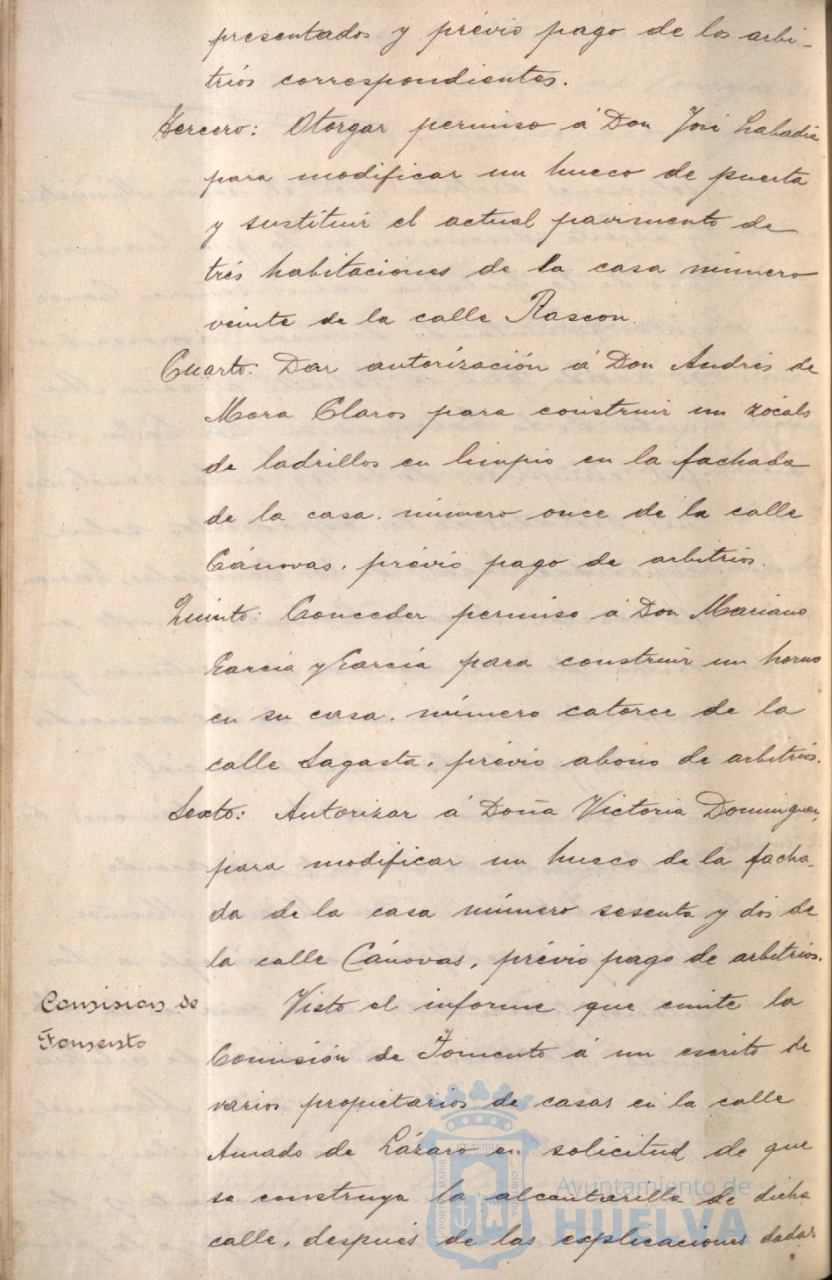 presentados y prévio pago de los arbi-
trios correspondientes.
Tercero: Otorgar permiso á Don José Labadía
para modificar un hueco de puerta
y sustituir el actual pavimento de
trés habitaciones de la casa número
veinte de la calle Rascon.
Cuarto: Dar autorización á Don Andrés de
Mora Claros para construir un zócalo
de ladrillos en limpio en la fachada
de la casa, número once de la calle
Cánovas, prévio pago de arbitrios.
Quinto: Conceder permiso á Don Mariano
García y García para construir un horno
en su casa, número catorce de la
calle Sagasta, prévio abono de arbitrios.
Sexto: Autorizar á Doña Victoria Dominguez
para modificar un hueco de la facha-
da de la casa número sesenta y dos de
la calle Cánovas, prévio pago de arbitrios.
Comision de
Fomento
Visto el informe que emite la
Comisión de Fomento á un escrito de
varios propietarios de casas en la calle
Amado de Lázaro en solicitud de que
se construya la alcantarilla de dicha
calle, después de las explicaciones dadas
PORTUS MARIS ET TERRAE CUSTODIA
Ayuntamiento de
HUELVA